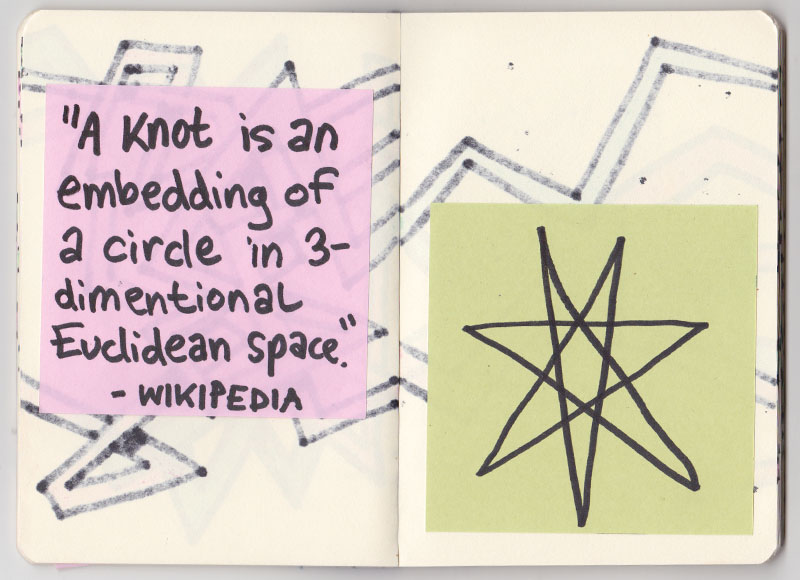 "A Knot is an
embedding of
a circle in 3-
dimentional
Euclidean space."
- WIKIPEDIA